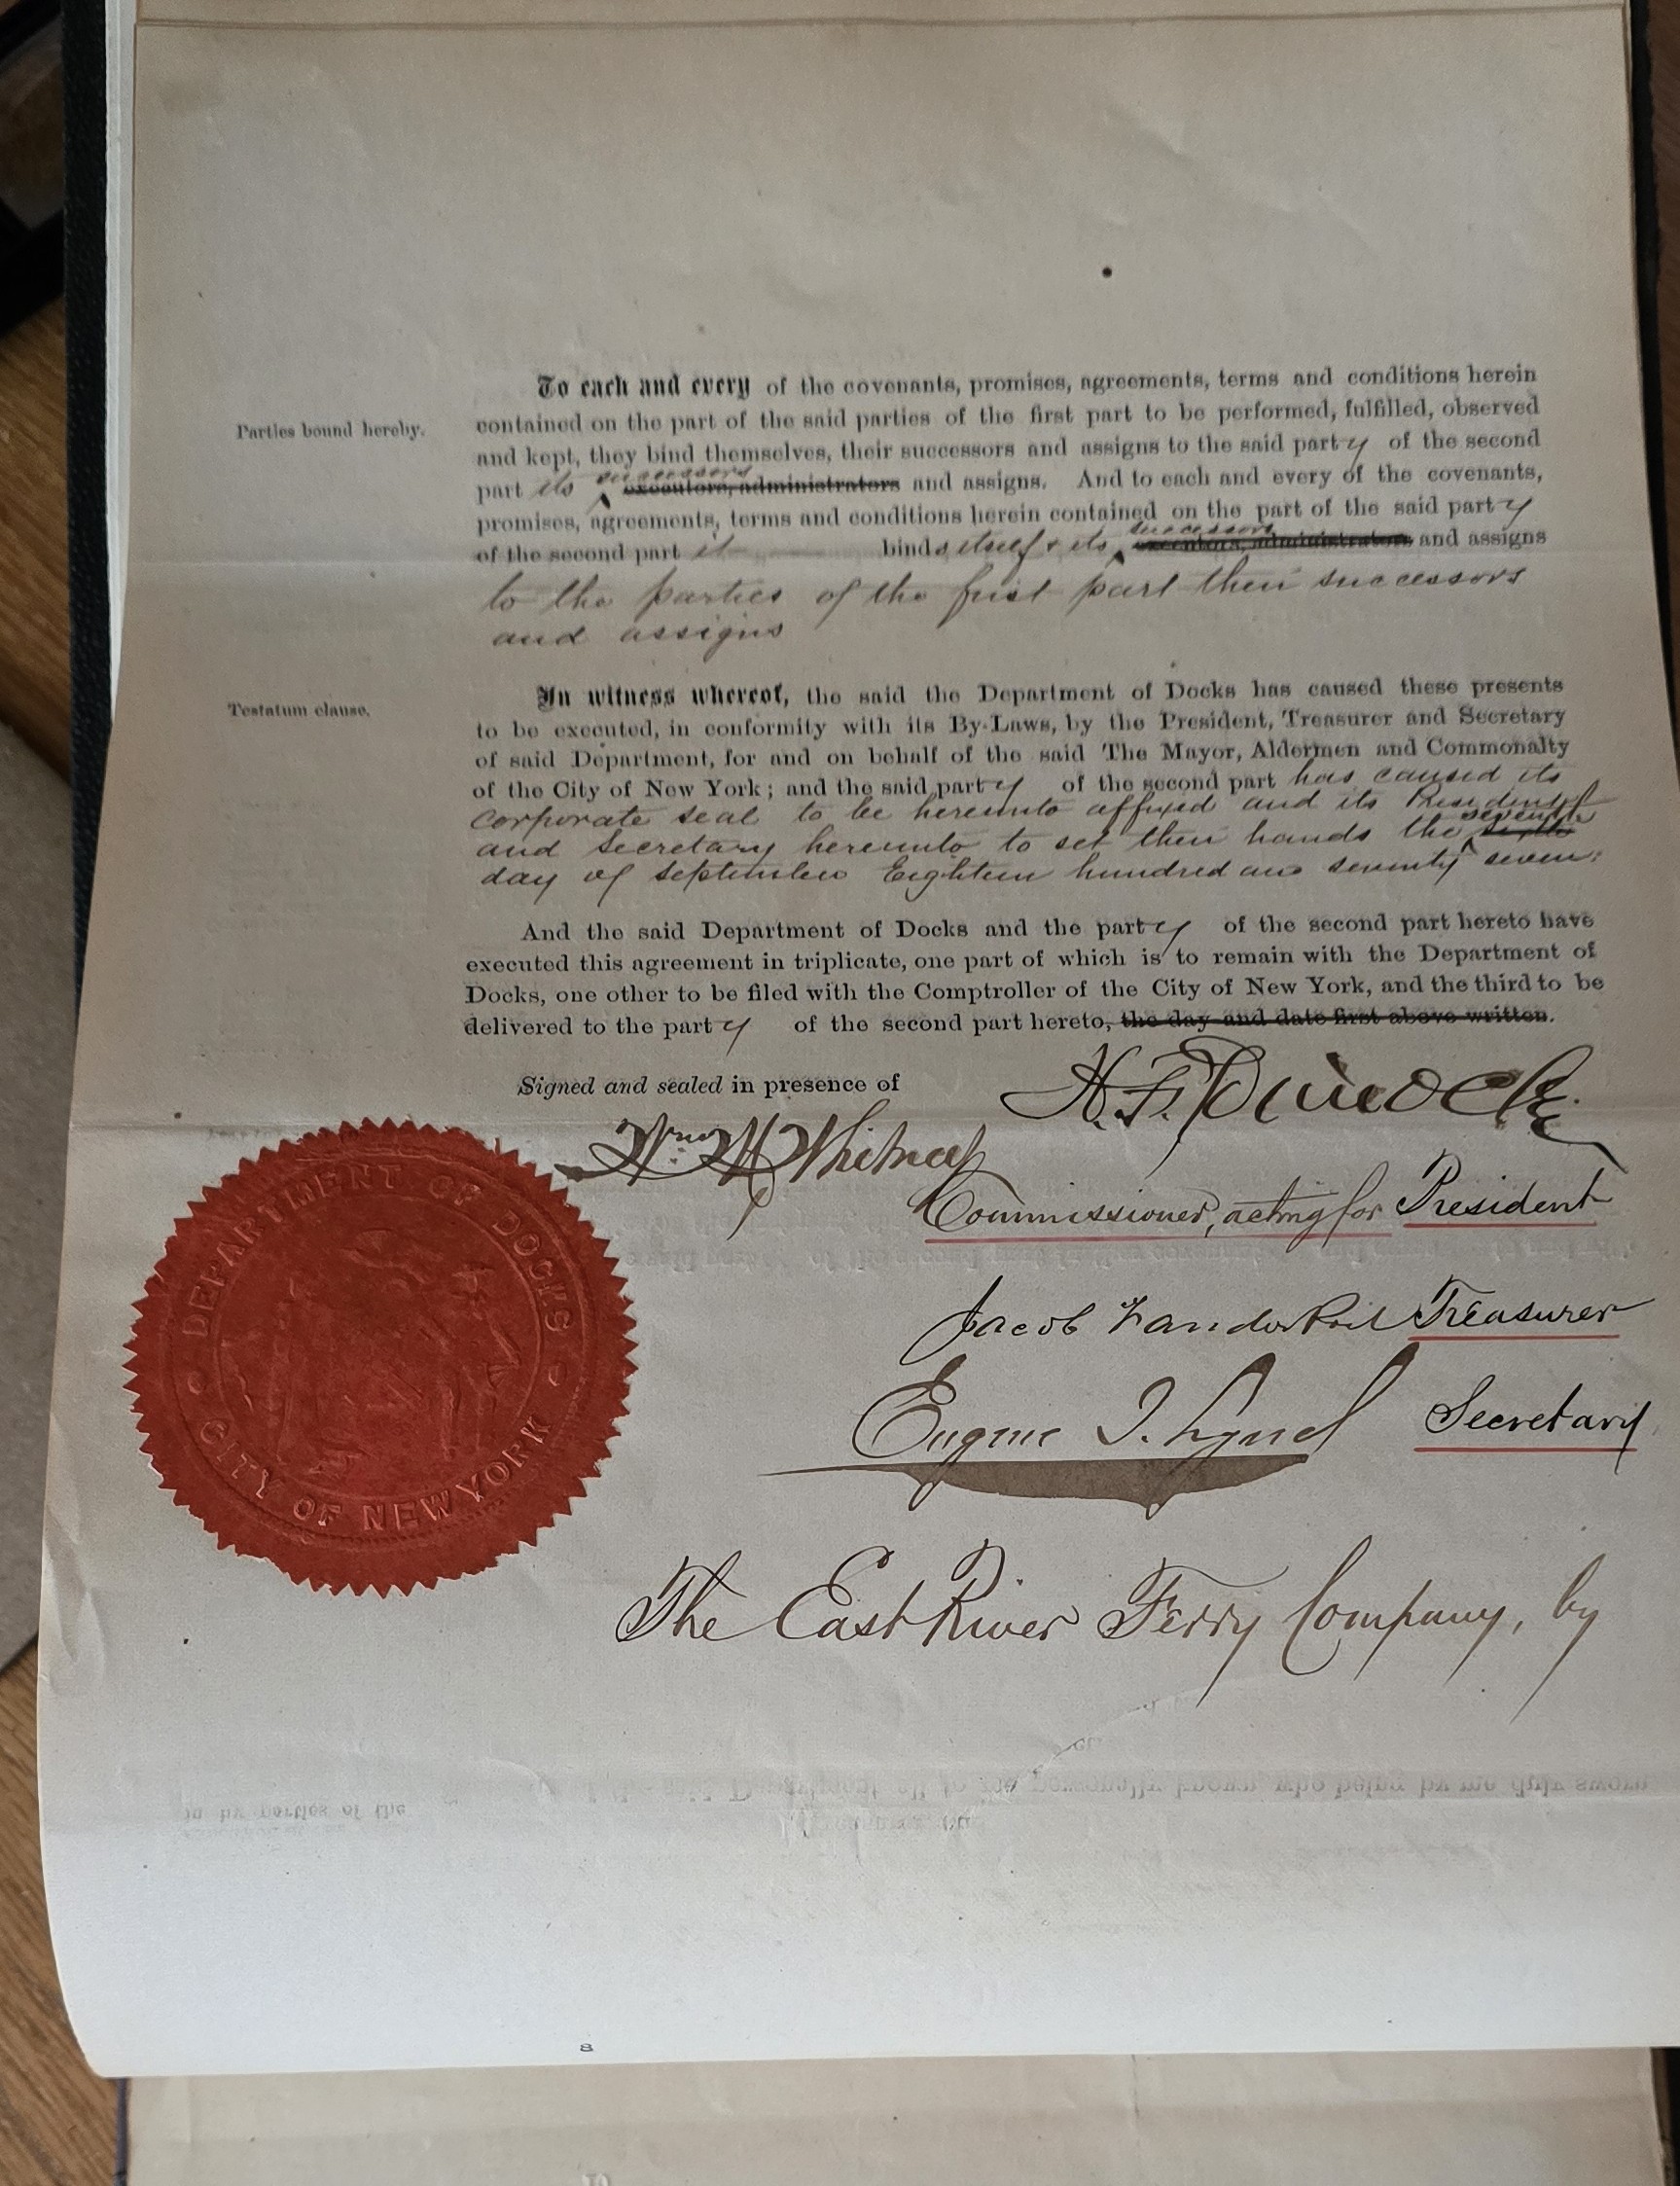 To each and every of the covenants, promises, agreements, terms and conditions herein
Parties bound hereby.
contained on the part of the said parties of the first part to be performed, fulfilled, observed
and kept, they bind themselves, their successors and assigns to the said party of the second
successors
part its executors, administrators and assigns. And to each and every of the covenants,
promises, agreements, terms and conditions herein contained on the part of the said party
successors
of the second part it binds itself & its executors, administrators and assigns
to the parties of the first part their successors
and assigns
Testatum clause.
In witness whereof, the said the Department of Docks has caused these presents
to be executed, in conformity with its By-Laws, by the President, Treasurer and Secretary
of said Department, for and on behalf of the said The Mayor, Aldermen and Commonalty
of the City of New York; and the said party of the second part has caused its
corporate seal to be hereunto affixed and its President
seventh
and Secretary hereunto to set their hands the
day of September Eighteen hundred and seventy seven.
And the said Department of Docks and the party of the second part hereto have
executed this agreement in triplicate, one part of which is to remain with the Department of
Docks, one other to be filed with the Comptroller of the City of New York, and the third to be
delivered to the party of the second part hereto, the day and date first above written.
Signed and sealed in presence of
H. F. Dimock
Wm H Whitney
Commissioner, acting for President
Jacob Vanderpoel Treasurer
Eugene T. Lynch Secretary
DEPARTMENT OF DOCKS
CITY OF NEW YORK
The East River Ferry Company, by
8